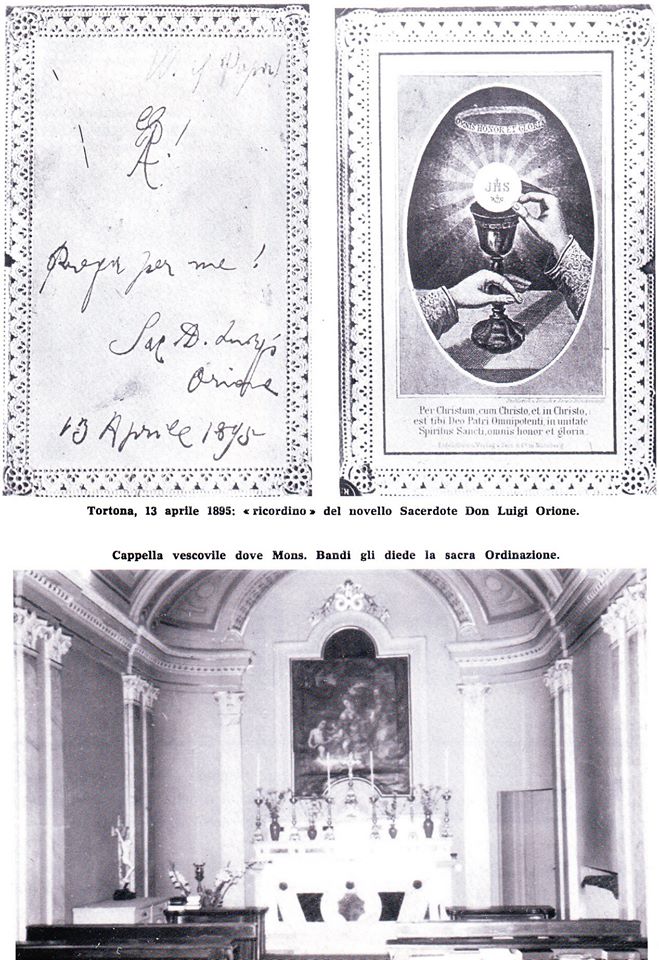 Prega per me!
Sac. D. Luigi
Orione
13 Aprile 1895
OMNIS HONOR ET GLORIA
JHS
Per Christum, cum Christo, et in Christo,
est tibi Deo Patri Omnipotenti, in unitate
Spiritus Sancti, omnis honor et gloria.
Tortona, 13 aprile 1895: «ricordino» del novello Sacerdote Don Luigi Orione.
Cappella vescovile dove Mons. Bandi gli diede la sacra Ordinazione.